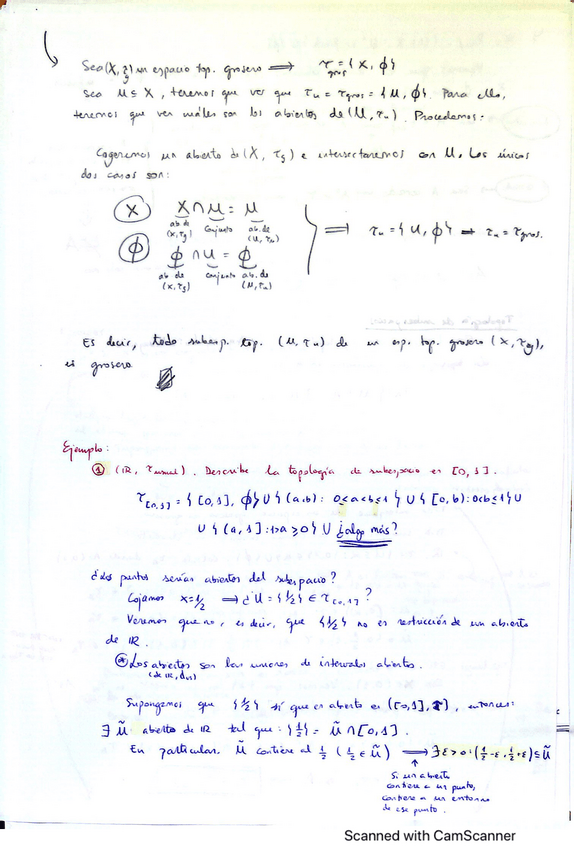 Sea (X, τg) un espacio top. grosero ⟹ τgros = { X, ϕ }
Sea U ⊆ X, tenemos que ver que τu = τgros = { U, ϕ }. Para ello,
tenemos que ver cuáles son los abiertos de (U, τu). Procedamos:
Cogeremos un abierto de (X, τg) e intersectaremos con U. Los únicos
dos casos son:
X X ∩ U = U
ab. de (X, τg) conjunto ab. de (U, τu)
⟹ τu = { U, ϕ } ⟹ τu = τgros.
ϕ ϕ ∩ U = ϕ
ab. de (X, τg) conjunto ab. de (U, τu)
Es decir, todo subesp. top. (U, τu) de un esp. top. grosero (X, τg),
es grosero
Ejemplo:
① (ℝ, τusual). Describe la topología de subespacio en [0, 1].
τ[0,1] = { [0,1], ϕ } ∪ { (a,b) : 0≤a<b≤1 } ∪ { [0, b) : 0<b≤1 } ∪
∪ { (a, 1] : 1>a≥0 } ∪ ¿algo más?
¿Los puntos serían abiertos del subespacio?
Cojamos x=1/2 ⟹ ¿U = { 1/2 } ∈ τ[0,1]?
Veremos que no, es decir, que { 1/2 } no es restricción de un abierto
de ℝ.
⊛ Los abiertos son las uniones de intervalos abiertos.
(de ℝ, du)
Supongamos que { 1/2 } sí que es abierto en ([0,1], τ), entonces:
∃ Ũ abierto de ℝ tal que: { 1/2 } = Ũ ∩ [0,1].
En particular, Ũ contiene al 1/2 (1/2 ∈ Ũ) ⟶ ∃ε>0 : (1/2-ε, 1/2+ε) ⊆ Ũ
↑
Si un abierto
contiene a un punto,
contiene a un entorno
de ese punto.
Scanned with CamScanner